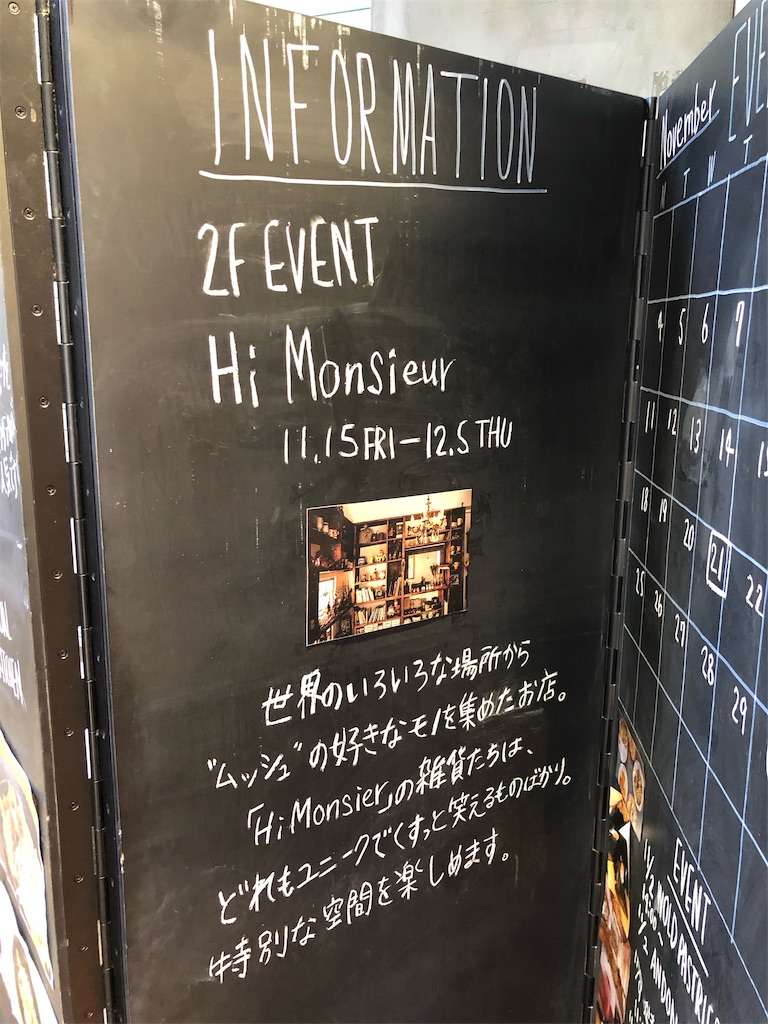 INFORMATION
2F EVENT
Hi Monsieur
11.15 FRI - 12.5 THU
世界のいろいろな場所から
"ムッシュ"の好きなモノを集めたお店。
「Hi Monsier」の雑貨たちは、
どれもユニークでくすっと笑えるものばかり。
特別な空間を楽しめます。
November
M T W T
4 5 6 7
11 12 13 14
18 19 20 21 22
25 26 27 28 29
EVENT